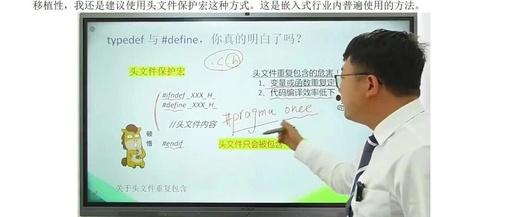 移植性，我还是建议使用头文件保护宏这种方式。这是嵌入式行业内普遍使用的方法。
typedef 与 #define，你真的明白了吗？
.c .h
头文件保护宏
#ifndef _XXX_H_
#define _XXX_H_
//头文件内容
#endif
头文件重复包含的危害：
1、变量或函数重复定
2、代码编译效率低下
#pragma once
顿悟
头文件只会被包含
关于头文件重复包含